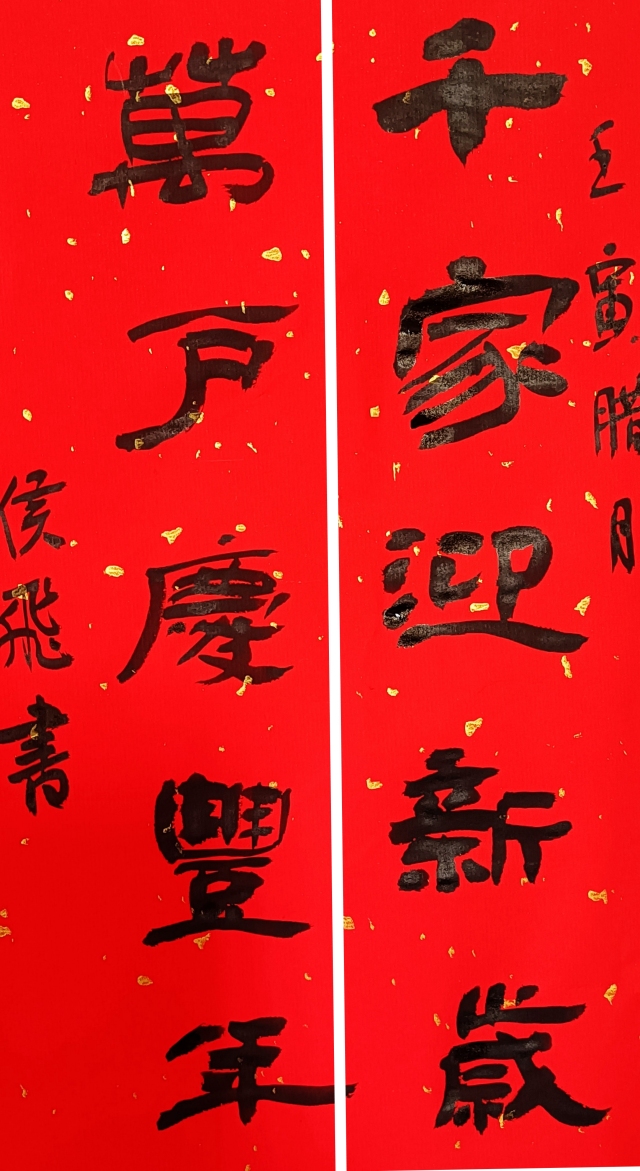 壬寅腊月
千家迎新歲
萬戶慶豐年
侯飛書